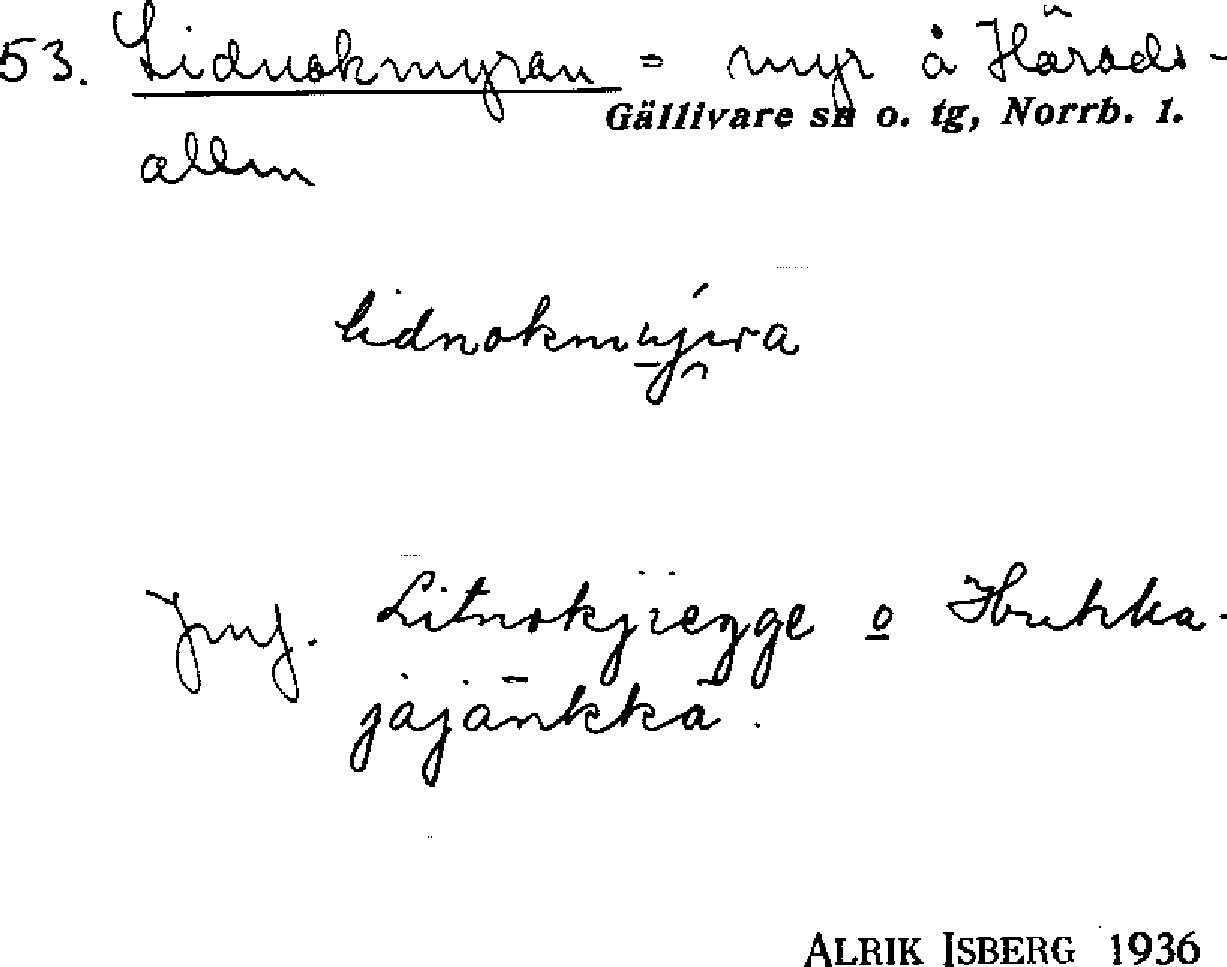 53. Lidnokmyran = myr å Härads-
Gällivare sn o. tg, Norrb. l.
allm
lidnokmyra
Jmf. Litnokjiegge o Huhka-
jajänkkä.
ALRIK ISBERG 1936